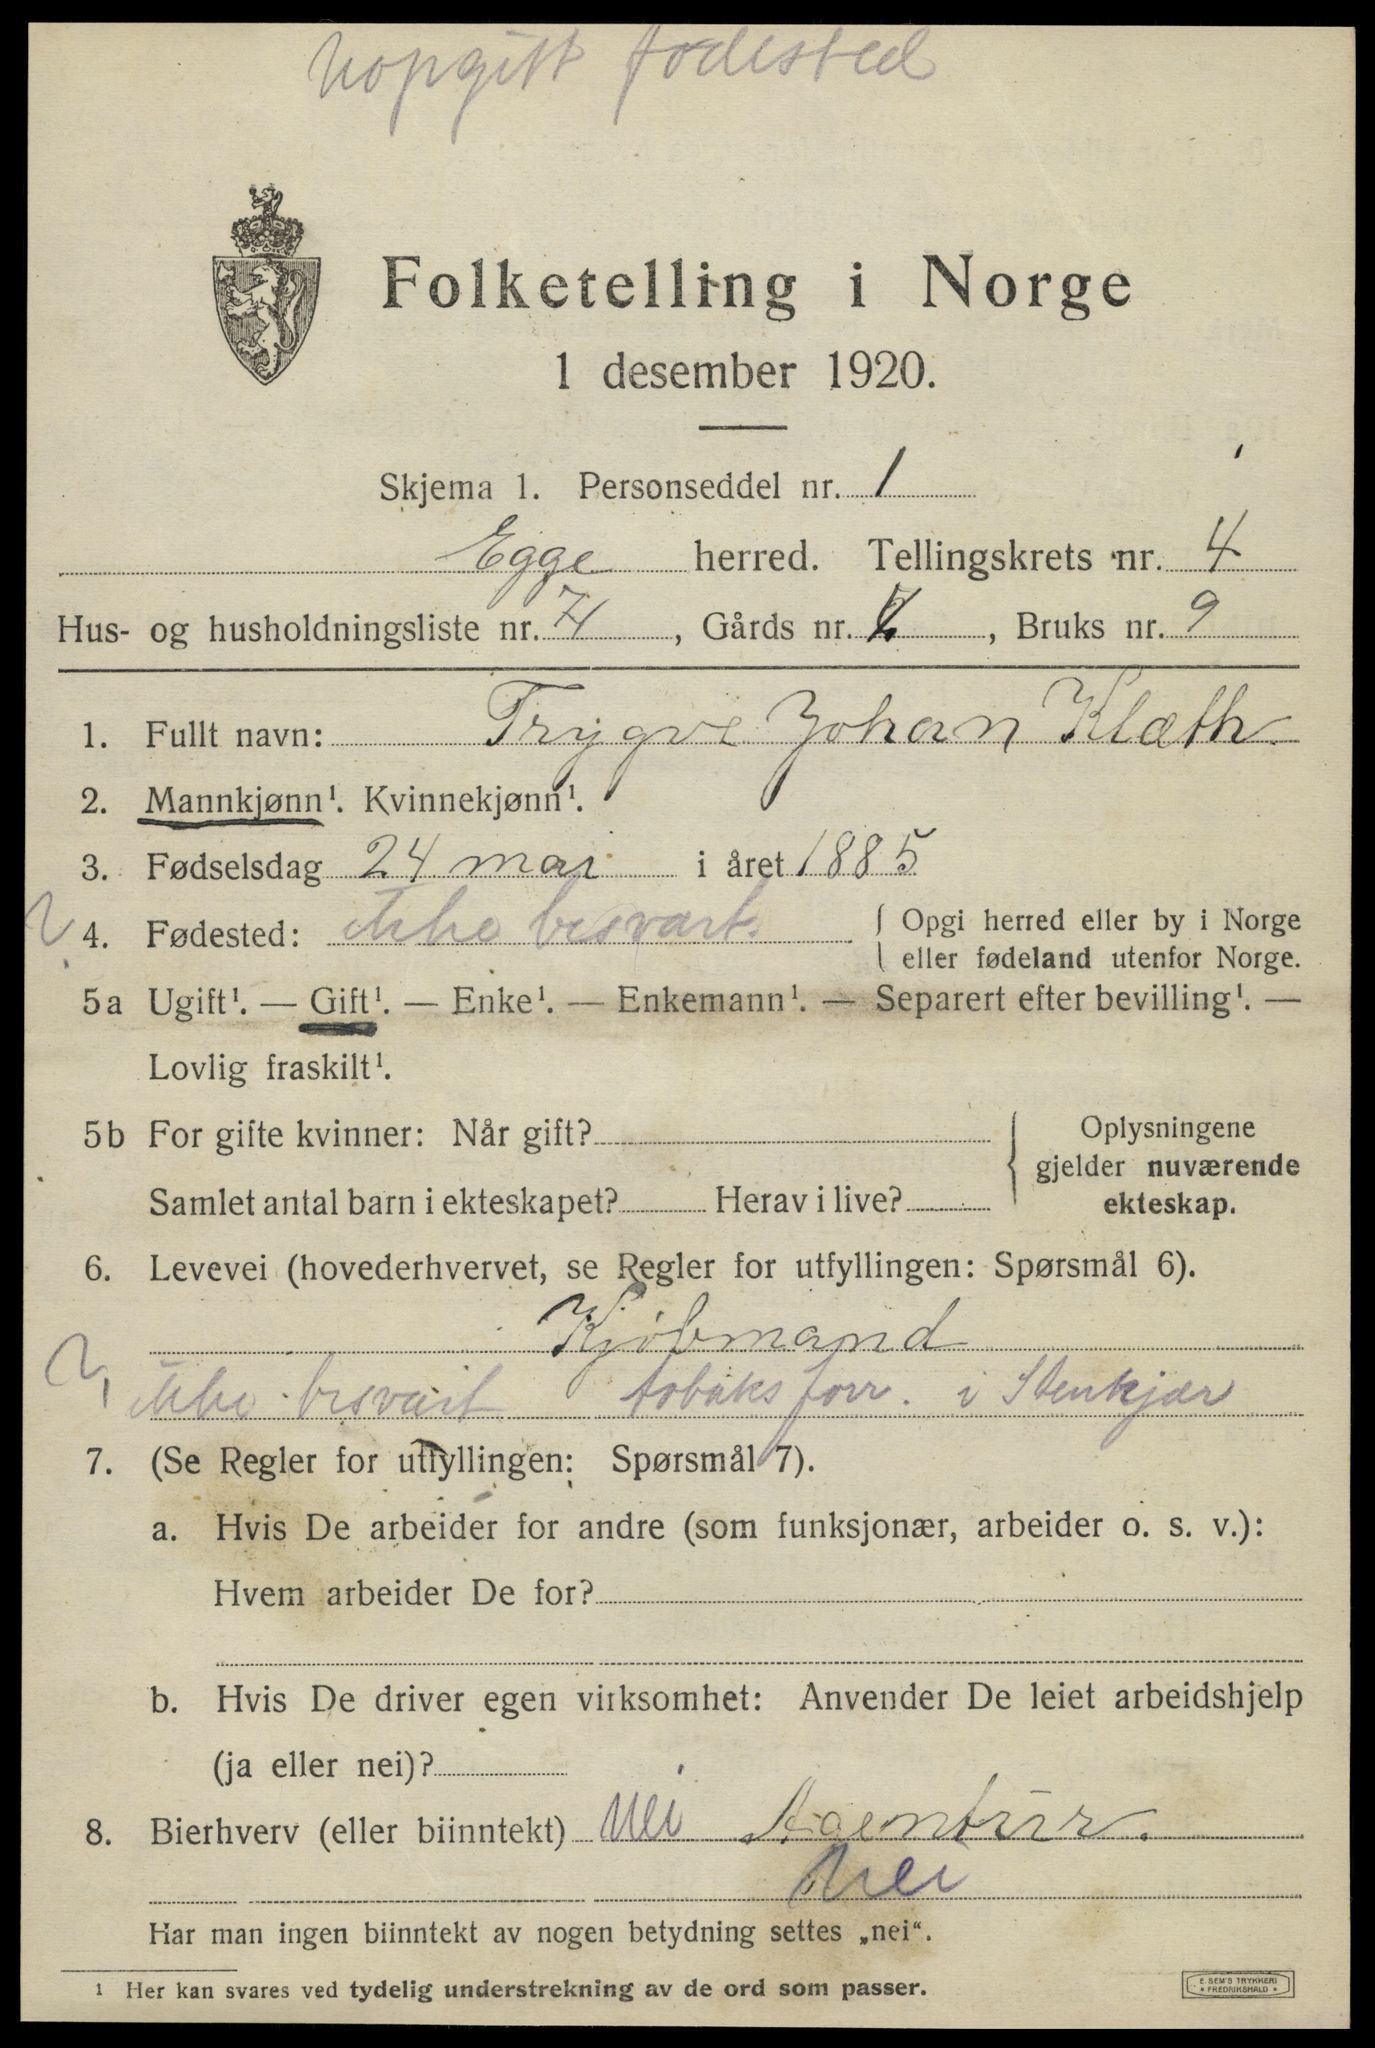 uopgitt fødested
Folketelling i Norge
1 desember 1920.
Skjema 1. Personseddel nr. 1
Egge herred. Tellingskrets nr. 4
Hus- og husholdningsliste nr. 74, Gårds nr. , Bruks nr. 9
1. Fullt navn: Trygve Johan Klæth
2. Mannkjønn¹. Kvinnekjønn¹.
3. Fødselsdag 24 mai i året 1885
4. Fødested: ikke besvart. { Opgi herred eller by i Norge
eller fødeland utenfor Norge.
5a Ugift¹. — Gift¹. — Enke¹. — Enkemann¹. — Separert efter bevilling¹. —
Lovlig fraskilt¹.
5b For gifte kvinner: Når gift?
Samlet antal barn i ekteskapet? Herav i live?
{ Oplysningene
gjelder nuværende
ekteskap.
6. Levevei (hovederhvervet, se Regler for utfyllingen: Spørsmål 6).
Kjøbmand
ikke besvart tobaksforr. i Stenkjær
7. (Se Regler for utfyllingen: Spørsmål 7).
a. Hvis De arbeider for andre (som funksjonær, arbeider o. s. v.):
Hvem arbeider De for?
b. Hvis De driver egen virksomhet: Anvender De leiet arbeidshjelp
(ja eller nei)?
8. Bierhverv (eller biinntekt) Nei Agentur.
Nei
Har man ingen biinntekt av nogen betydning settes „nei“.
¹ Her kan svares ved tydelig understrekning av de ord som passer.
E. SEM'S TRYKKERI
* FREDRIKSHALD *